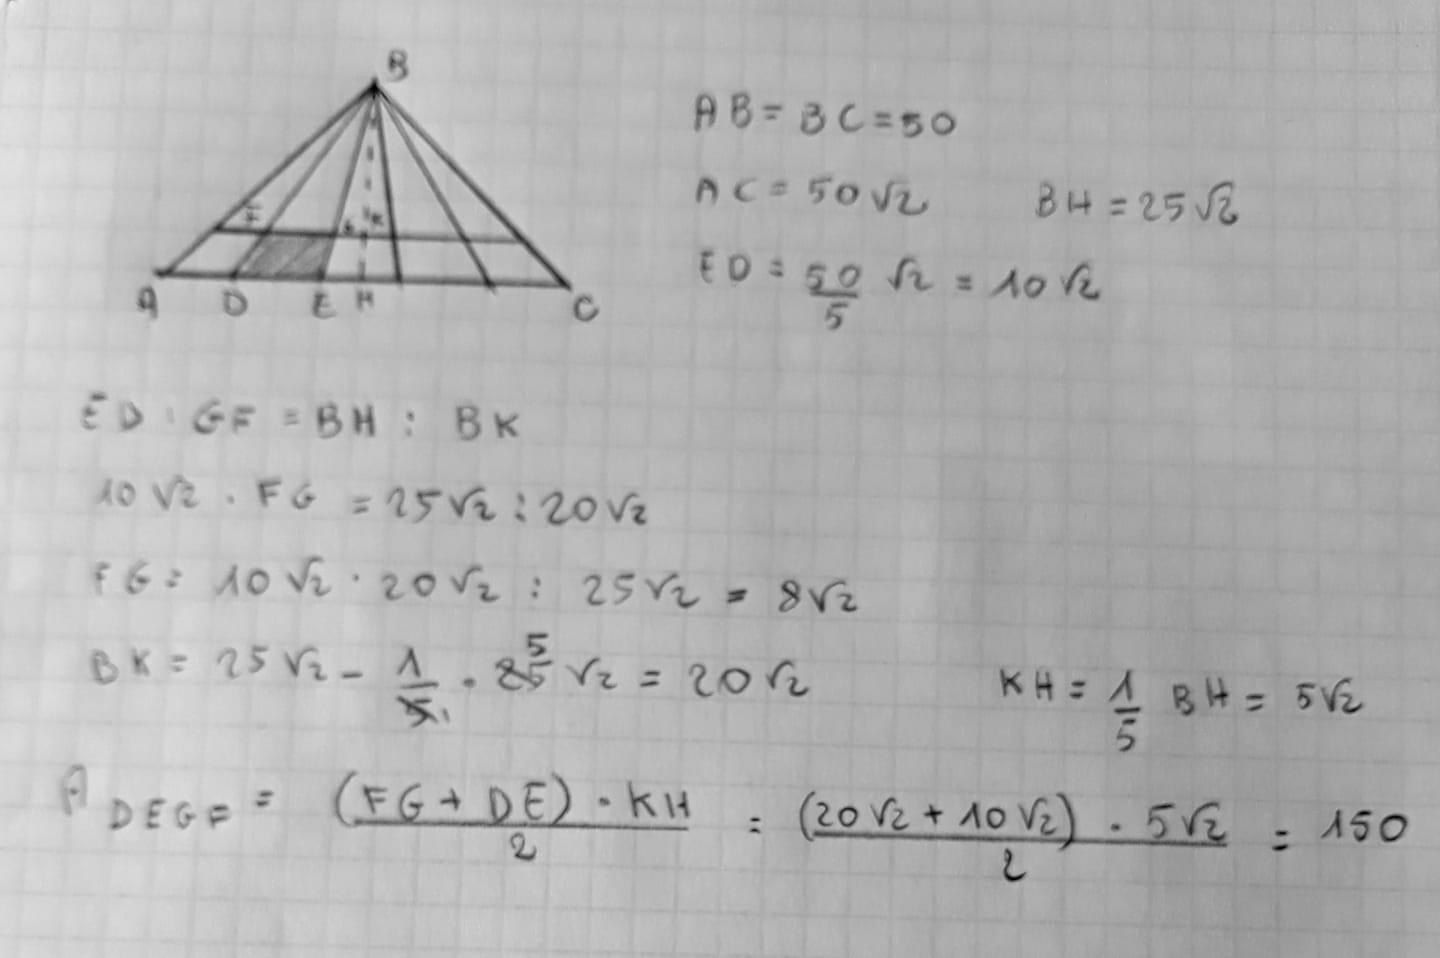 B
AB = BC = 50
AC = 50√2 BH = 25√2
F G K
ED = 50/5 √2 = 10√2
A D E H C
ED : GF = BH : BK
10√2 . FG = 25√2 : 20√2
FG = 10√2 · 20√2 : 25√2 = 8√2
BK = 25√2 - 1/5 · 25 5 √2 = 20√2 KH = 1/5 BH = 5√2
A DEGF = (FG + DE) · KH / 2 = (20√2 + 10√2) · 5√2 / 2 = 150